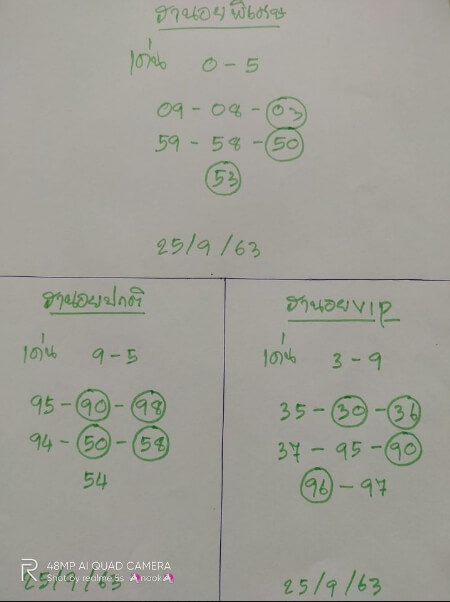 ฮานอยพิเศษ
เด่น 0-5
09-08-03
59-58-50
53
25/9/63
ฮานอยปกติ
เด่น 9-5
95-90-98
94-50-58
54
25/9/63
48MP AI QUAD CAMERA
Shot by realme 5s ancok
ฮานอยVIP
เด่น 3-9
35-30-36
37-95-90
96-97
25/9/63